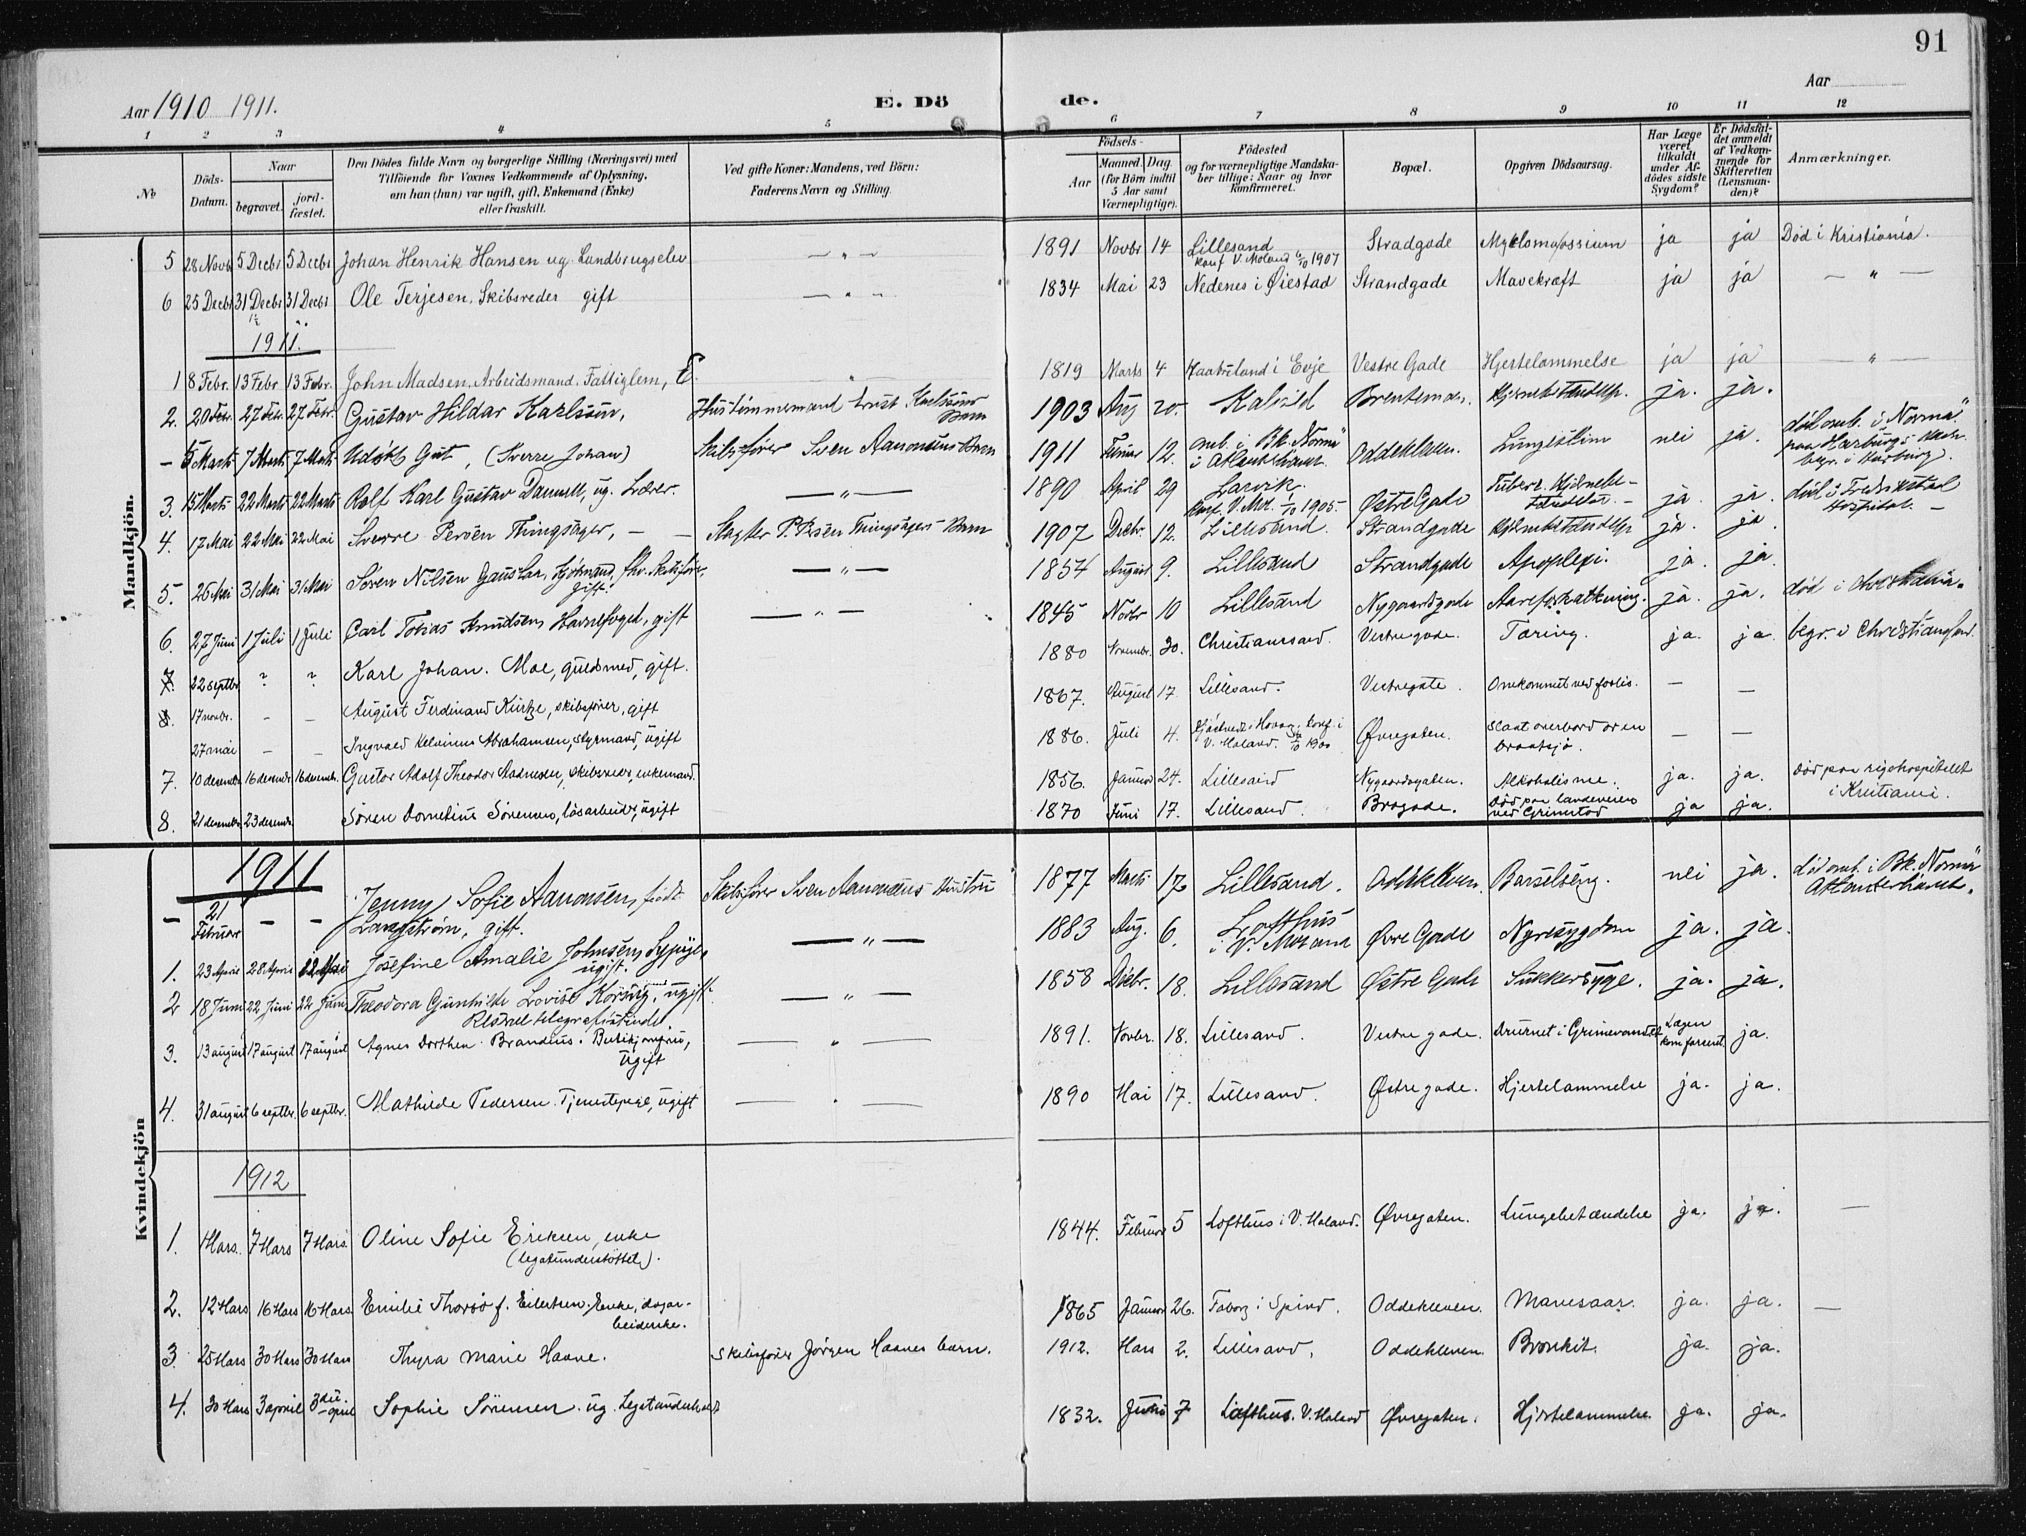 91
Aar 1910 1911.
E. Dö de.
Aar
1 2 3 4 5 6 7 8 9 10 11 12
No
Döds-Datum.
Naar
begravet.
jord-fæstet.
Den Dödes fulde Navn og borgerlige Stilling (Næringsvei) med
Tilföiende for Voxnes Vedkommende af Oplysning,
om han (hun) var ugift, gift, Enkemand (Enke)
eller fraskilt.
Ved gifte Koner: Mandens, ved Börn:
Faderens Navn og Stilling.
Födsels-
Aar
Maaned. Dag.
(for Börn indtil 5 Aar samt Værnepligtige).
Födested
og for værnepligtige Mandska-
ber tillige: Naar og hvor
Konfirmeret.
Bopæl.
Opgiven Dödsaarsag.
Har Læge været tilkaldt under Afdödes sidste Sygdom?
Er Dödsfaldet anmeldt af Vedkommende for Skifteretten (Lensmanden)?
Anmærkninger.
Mandkjön.
5 28 Novb 5 Decbr 5 Decbr Johan Henrik Hansen ug. Landbrugselev — " — 1891 Novbr 14 Lillesand konf V. Moland 1907 Stradgade ja ja Död i Kristiania.
6 25 Decbr 31 Decbr 31 Decbr Ole Terjesen, Skibsreder gift — " — 1834 Mai 23 Nedenes i Øiestad Strandgade Mavekræft ja ja — " —
1911.
1 8 Febr. 13 Febr. 13 Febr. John Madsen, Arbeidsmand, Fattiglem, E. " 1819 Marts 4 i Evje Vestre Gade Hjertelammelse ja ja — " —
2. 20 Febr. 27 Febr. 27 Febr. Gustav Hildar Karlsson, Ernst Karlssons Barn 1903 Aug 20. ja. ja.
— 5 Marts 7 Marts 7 Marts Udøbt Gut, (Sverre Johan) Skibsfører Sven Aanonsens Barn 1911 Februar 12. omb. i Bk. "Norma" i Atlanterhavet Oddekleven. nei ja. död omb. i "Norma" paa Harburgs begr. i Harburg.
3. 15 Marts 22 Marts 22 Marts Rolf Karl Gustav ug. Lærer. — " — 1890 April 29 Larvik. Konf. V. Mol. 1905 Østre Gade Tuberk. Hjernebetændelse. — ja. ja. död i Fredrikstad Hospital. —
4. 17 Mai 22 Mai 22 Mai Sverre Persen Thingsager, — — P. Persen Thingsagers Barn 1907 Decbr 12. Lillesand. Strandgade ja. ja
5. 26 Mai 31 Mai 31 Mai Søren Nilsen Sjømand, fhv. Skibsfører, gift. — " — 1854 August 9. Lillesand Strandgade Apoplexi. ja. ja.
6. 27 Juni 1 Juli 1 Juli Carl Tobias Knudsen, Havnefoged, gift — " — 1845 Novbr 10 Lillesand Nygaardsgade Aareforkalkning. ja. ja. död i Christiania.
7. 22 septbr ? ? Karl Johan. Moe, guldsmed, gift. 1880 Novembr. 30. Christianssand. Vestregade. Tæring. ja. ja. begr. i Christianssand.
8. 17 novbr. — — August Ferdinand skibsfører, gift 1867. August 17 Lillesand. Vestregate. Omkommet ved forlis. — —
27 mai — — Ingvald Abrahamsen, styrmand, ugift 1886. Juli 4. konf. i V. Moland. 1900 Øvregaten. Slaat overbord av en braatsjø. — —
7. 10 desembr 16 desembr 16 desembr. Gustav Adolf Theodor skibsreder, enkemand. 1856. Januar 24. Lillesand Nygaardsgaten. Alkoholisme. ja. ja. Död paa rigshospitalet i Kristiania.
8. 21 desembr 23 desembr Søren Sørensen, løsarbeider, ugift 1870 Juni 17. Lillesand. Brogade. Död paa landeveien ved Grimstad ja ja.
Kvindekjön
1911
— 21 Februar — — Jenny Sofie Aanonsen, født Langstrøm, gift. Skibsfører Sven Aanonsens Hustru 1877 Marts 17 Lillesand. Oddekleven. Barselseng. nei ja. död omb. i Bk. "Norma" Atlanterhavet.
1. 23 April 28 April 22 Josefine Amalie Johnsen, Sypige, ugift. — " — 1883 Aug. 6. Lofthus i V. Moland Øvre Gade Nyresygdom ja. ja.
2 18 Juni 22 Juni 22 Juni Theodora Gunhilde Lovise ugift. — " — 1858 Decbr. 18. Lillesand Østre Gade Sukkersyge. ja. ja.
3. 13 august 17 august 17 august Agnes Dorthea. Brandeus. Butikjomfru, ugift — " — 1891. Novbr. 18. Lillesand. Vestre gade. druknet i Grimevandet Lægen kom forsent ja.
4. 31 august 6 septbr. 6 septbr. Mathilde Pedersen. Tjenestepige, ugift — " — 1890 Mai 17. Lillesand. Østre gade. Hjertelammelse ja. ja.
1912
1. 1 Mars. 7 Mars 7 Mars. Oline Sofie Eriksen, enke (legatunderstøttet). 1844. Februar 5 Lofthus i V. Moland. Øvregaten. Lungebetændelse ja. ja. —
2. 12 Mars 16 Mars 16 Mars. Emilie Thorsø f. Eilertsen. Enke, dagarbeiderske. 1865 Januar 26. i Spind. Oddekleven. Mavesaar. ja. ja. —
3 25 Mars 30 Mars 30 Mars Thyra Marie Haave. Skibsfører Jørgen Haaves barn. 1912. Mars 2. Lillesand. Oddekleven. Bronkit. ja. ja.
4. 30 Mars 3 april 3die april Sophie Sørensen. ug. 1832. Juni 7 Lofthus. V. Moland Øvregaten. Hjertelammelse. ja. ja.